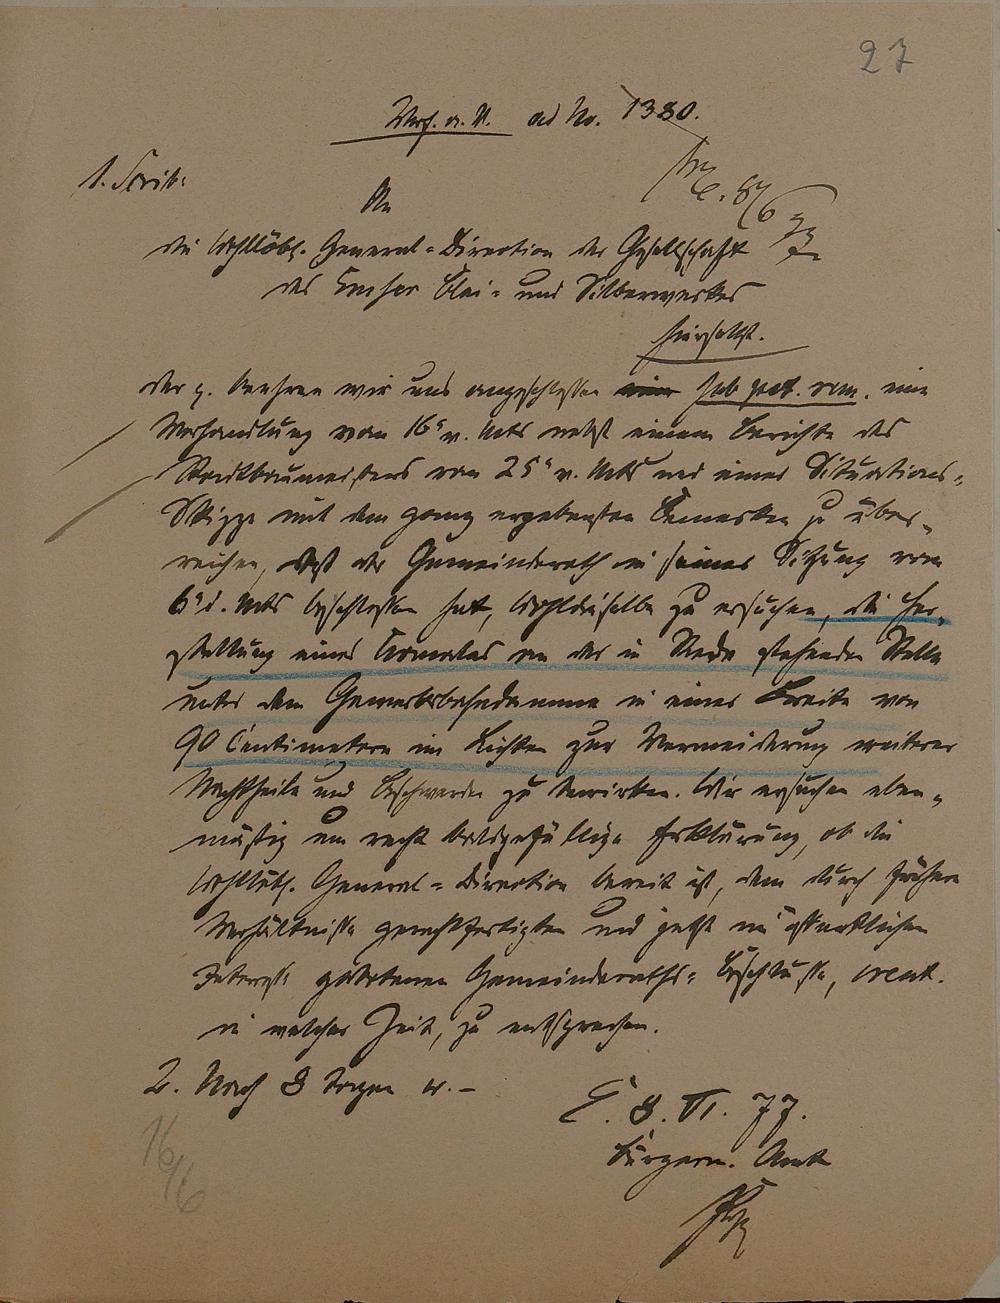 27
Verf. a. U. ad No. 1380.
1. Scrib:
An
die Wohllöbl. General-Direction der Gesellschaft
des Emser Blei- und Silberwerkes
hierselbst.
Der p. beehren wir uns angeschlossen sub pet. rem. eine
Verhandlung vom 16t v. Mts nebst einem Berichte des
Stadtbaumeisters vom 25t v. Mts und einer Situations-
Skizze mit dem ganz ergebensten Bemerken zu über-
reichen, daß der Gemeinderath in seiner Sitzung vom
6t d. Mts beschlossen hat, Wohldieselbe zu ersuchen, die Her-
stellung eines Canales an der in Rede stehenden Stelle
unter dem Gewerksbahndamme in einer Breite von
90 Centimetern im Lichten zur Vermeidung weiterer
Nachtheile und Beschwerden zu bewirken. Wir ersuchen eben-
mäßig um recht baldgefällige Erklärung, ob die
Wohllöbl. General-Direction bereit ist, dem durch frühere
Verhältnisse gerechtfertigten und jetzt im öffentlichen
Interesse gebotenen Gemeinderaths-Beschlusse, event.
in welcher Zeit, zu entsprechen.
2. Nach 8 Tagen w. -
E. 8. VI. 77.
Bürgerm. Amt
16/6